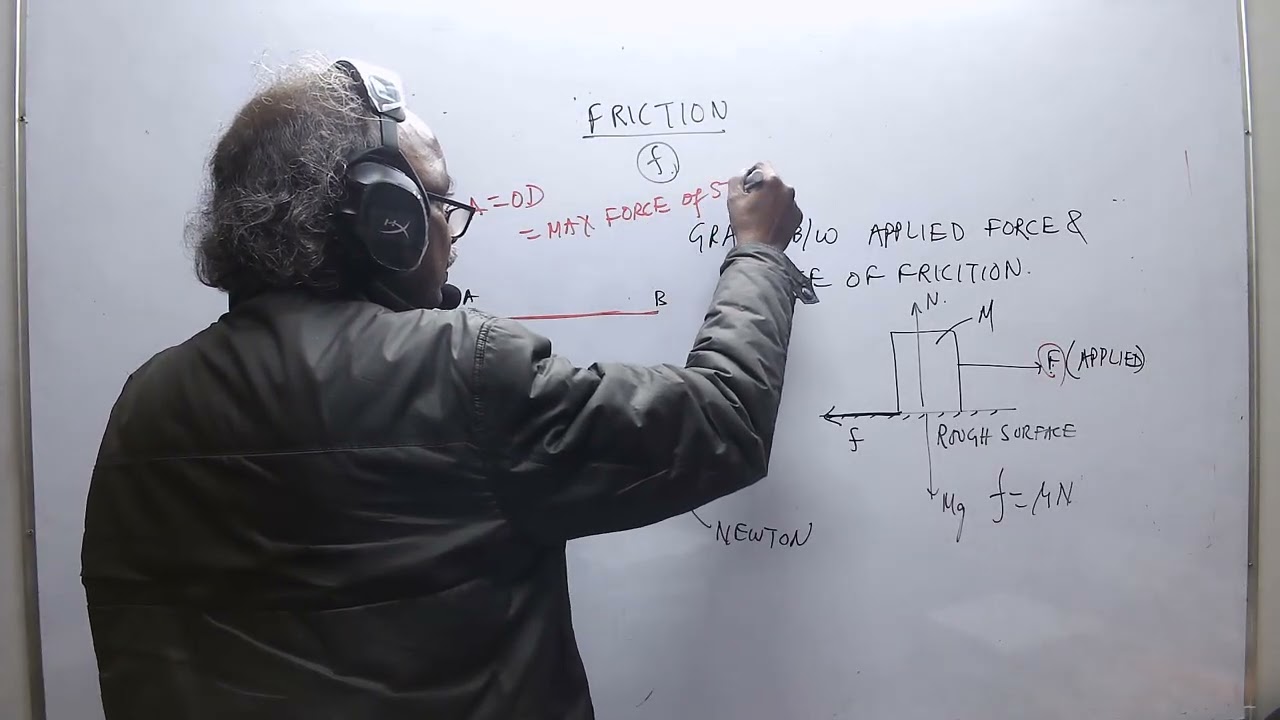 FRICTION
f
A = OD
= MAX FORCE of ST
B/W APPLIED FORCE &
OF FRICITION.
A B
N
M
F (APPLIED)
f
ROUGH SURFACE
Mg
f = μN
NEWTON